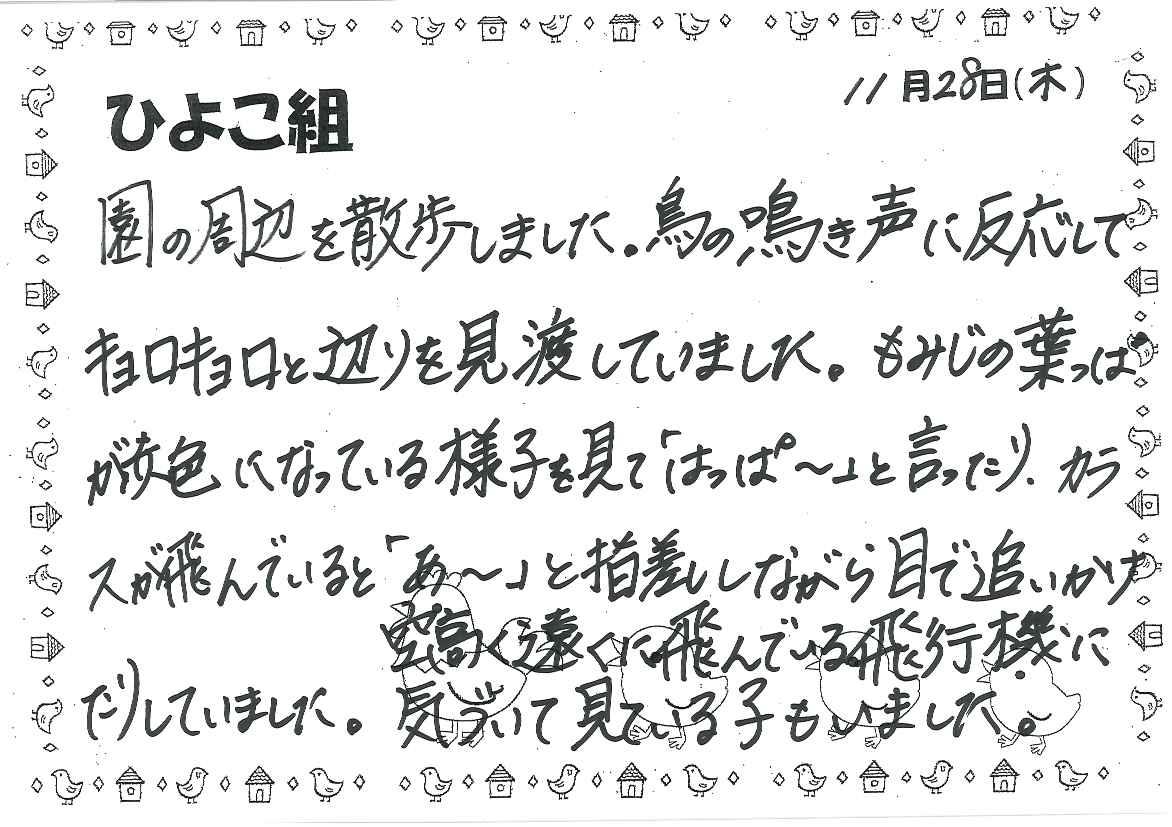 11月28日(木)
ひよこ組
園の周辺を散歩しました。鳥の鳴き声に反応して
キョロキョロと辺りを見渡していました。もみじの葉っぱ
が灰色になっている様子を見て「はっぱ~」と言ったり、カラ
スが飛んでいると「あ~」と指差ししながら目で追いかけ
空高く遠くに飛んでいる飛行機に
たりしていました。気づいて見ている子もいました。